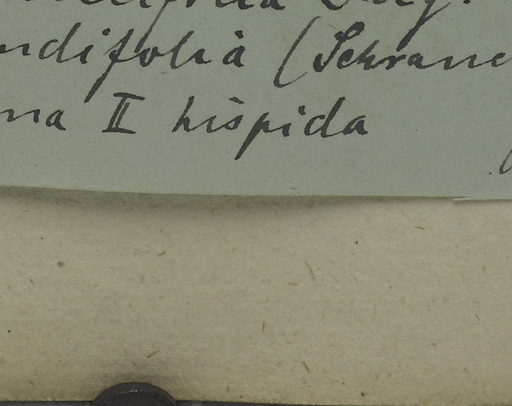 ndifolia (Schranc
ma II hispida